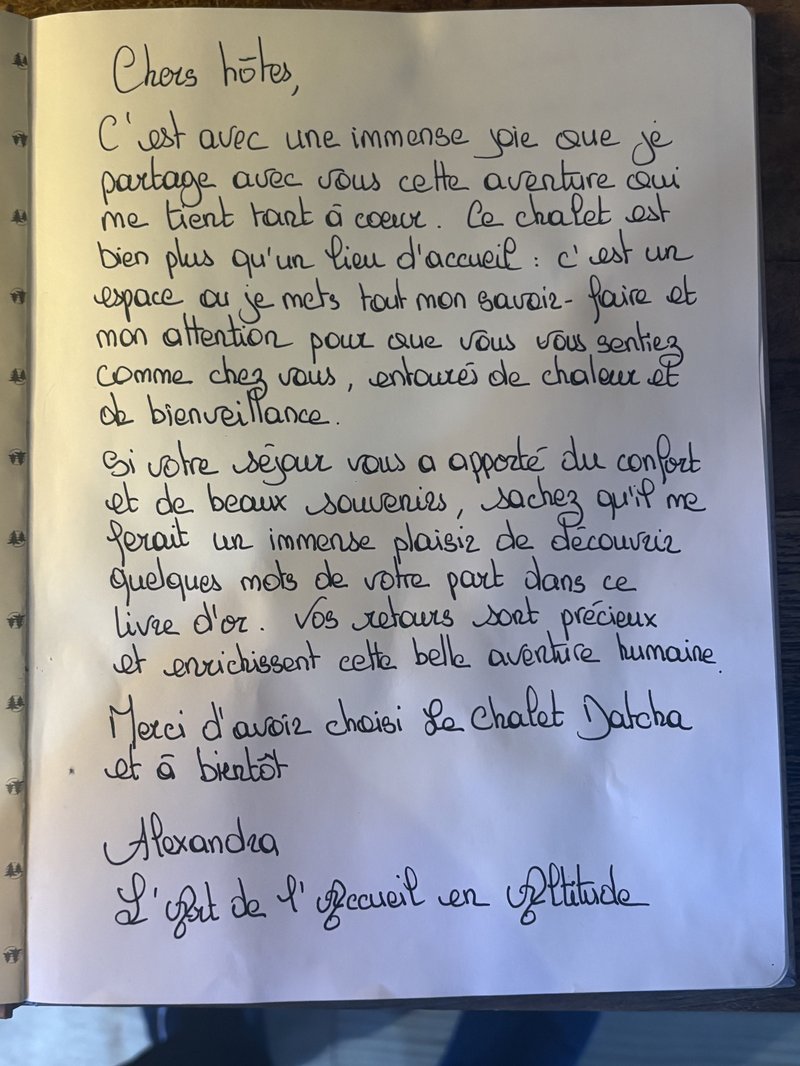 Chers hôtes,
C'est avec une immense joie que je
partage avec vous cette aventure qui
me tient tant à coeur. Ce chalet est
bien plus qu'un lieu d'accueil : c'est un
espace ou je mets tout mon savoir-faire et
mon attention pour que vous vous sentiez
comme chez vous, entourés de chaleur et
de bienveillance.
Si votre séjour vous a apporté du confort
et de beaux souvenirs, sachez qu'il me
ferait un immense plaisir de découvrir
quelques mots de votre part dans ce
livre d'or. Vos retours sont précieux
et enrichissent cette belle aventure humaine.
Merci d'avoir choisi Le Chalet Datcha
et à bientôt
Alexandra
L'Art de l'Accueil en Altitude